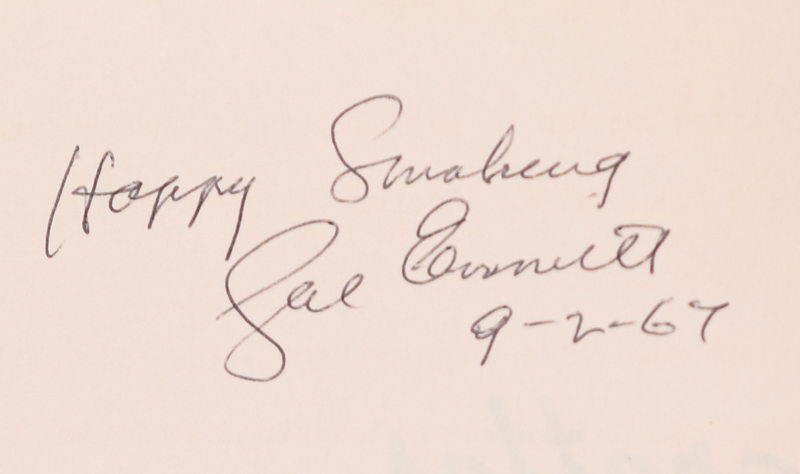 Happy Smoking
Sal Emmett
9-2-67